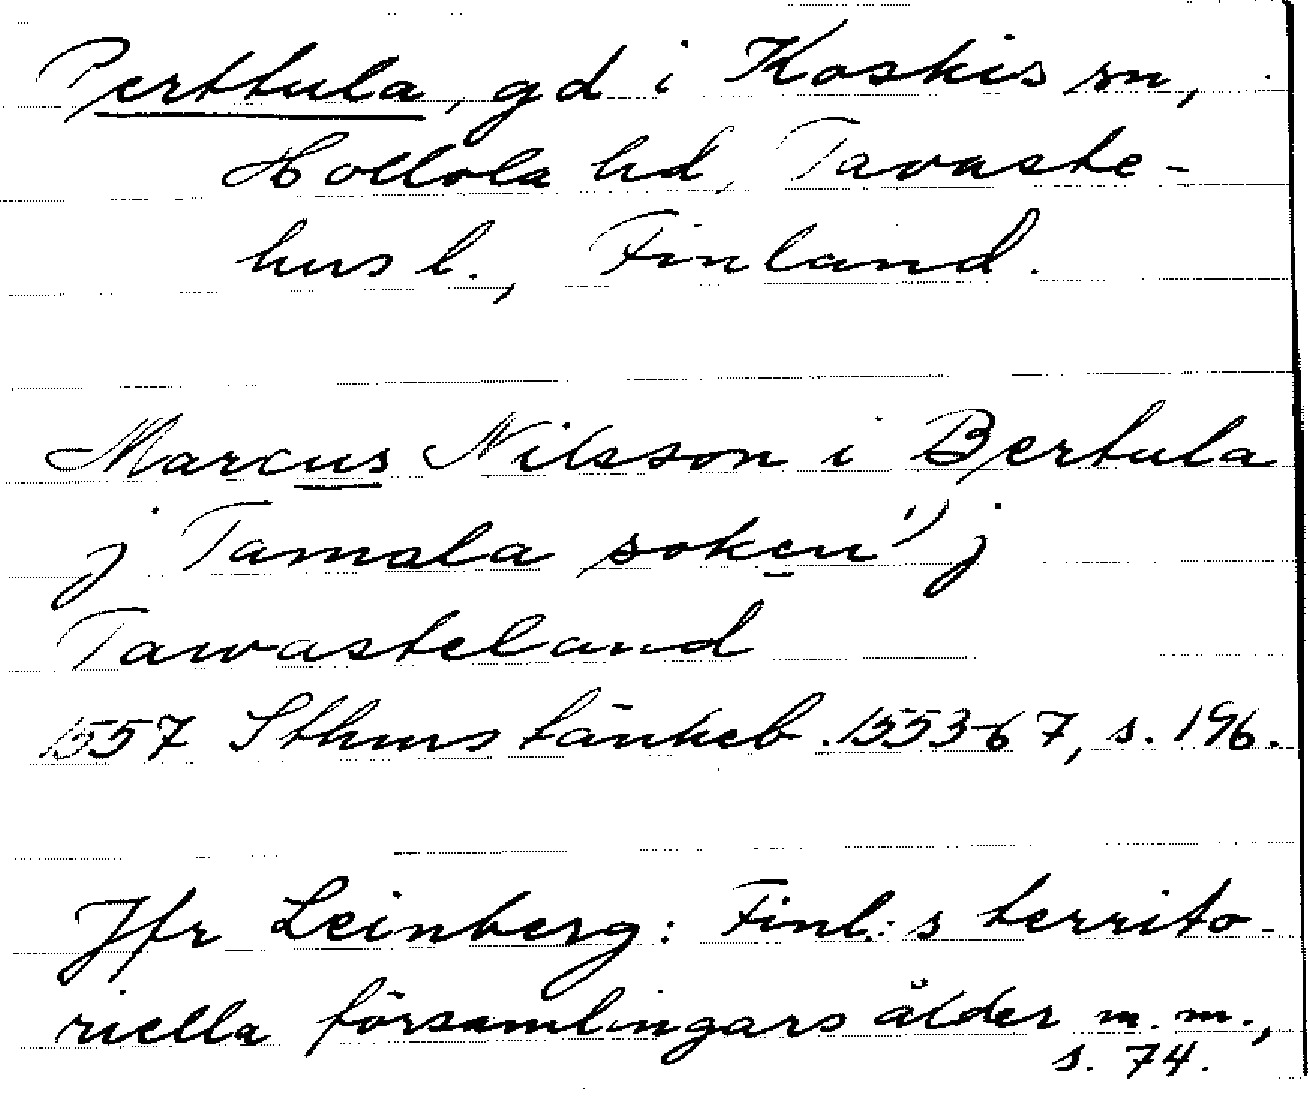 Perttula, gd i Koskis sn,
Hollola hd, Tavaste-
hus l., Finland.
Marcus Nilsson i Bertula
j Tamala soken¹) j
Tawasteland
1557 Sthms tänkeb. 1553-67, s. 196.
Jfr Leinberg: Finl:s territo-
riella församlingars ålder m. m.,
s. 74.